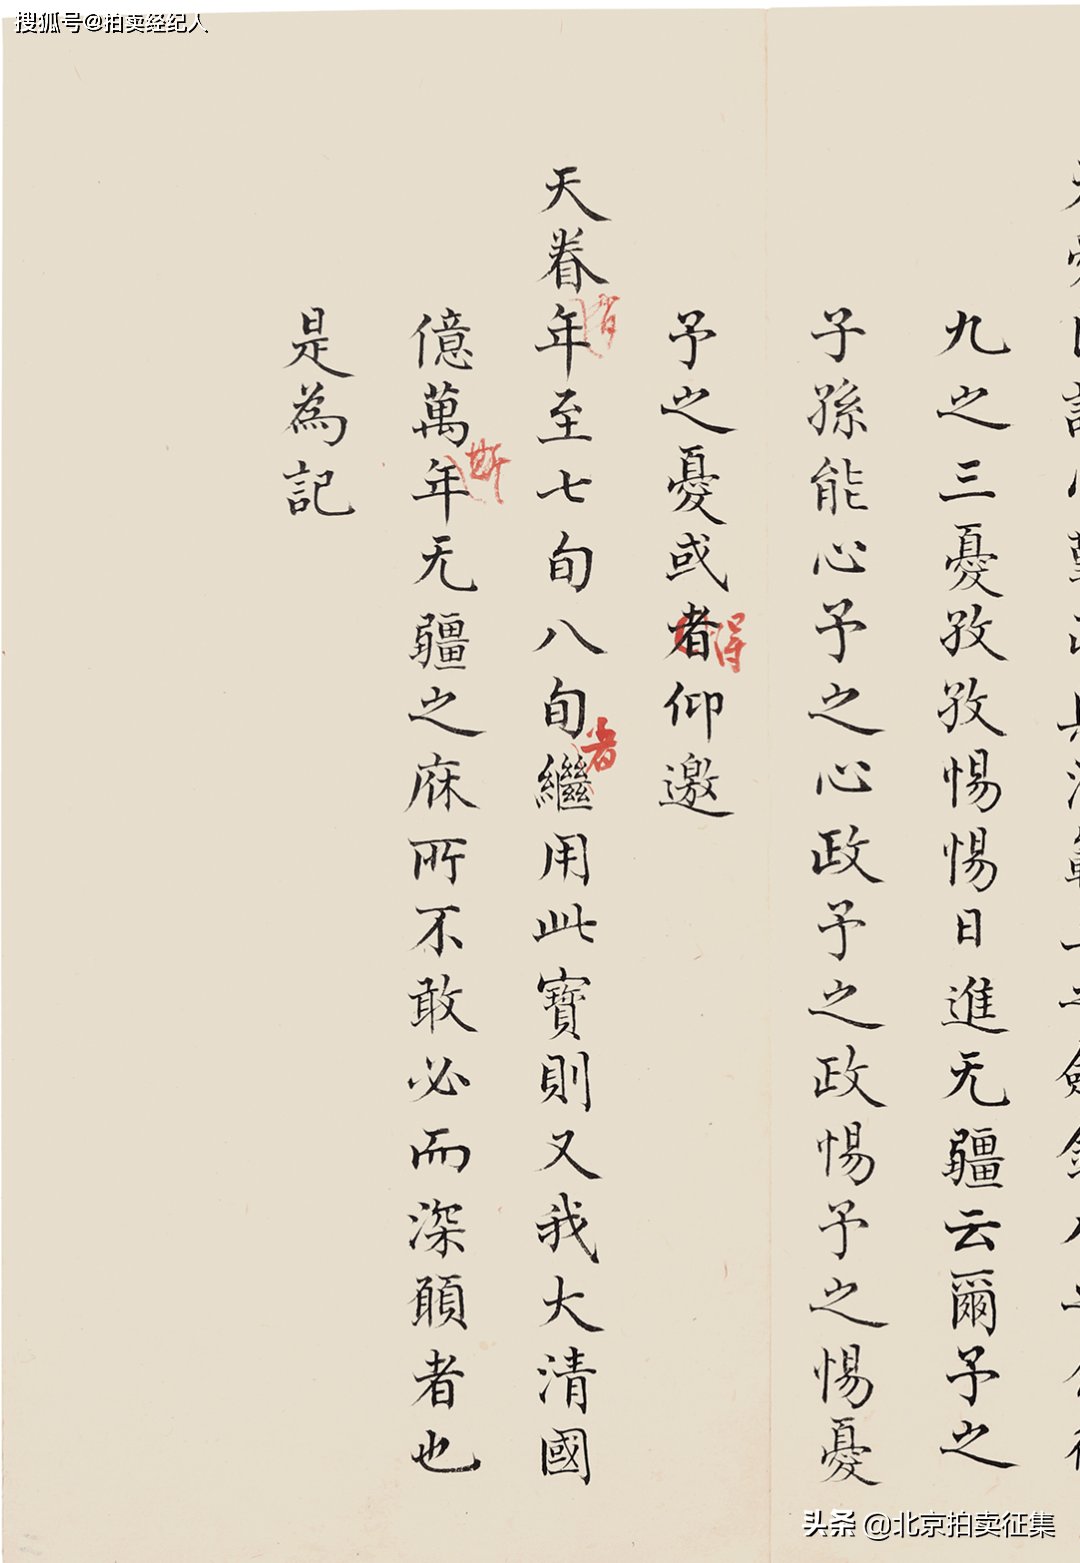 搜狐号@拍卖经纪人
九之三憂孜孜惕惕日進无疆云爾予之
子孫能心予之心政予之政惕予之惕憂
予之憂或者仰邀
得
天眷年至七旬八旬繼用此寶則又我大清國
者
億萬年无疆之庥所不敢必而深願者也
斯
是為記
头条 @北京拍卖征集